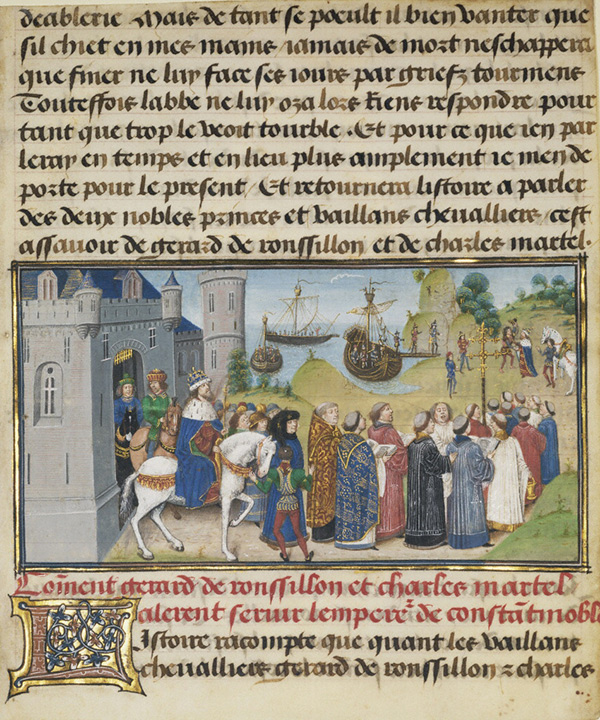 deablerie Mais de tant se poeult il bien vanter que
sil chiet en mes mains iamais de mort neschappera
que finer ne luy face ses iours par griefz tourmens
Touteffois labbe ne luy oza lors riens respondre pour
tant que trop le veoit tourble. Et pour ce que ien par
leray en temps et en lieu plus amplement ie men de
porte pour le present / Et retournera listoire a parler
des deux nobles princes et vaillans chevalliers cest
assavoir de gerard de ronssillon et de charles martel.
Coment gerard de ronssillon et charles martel
alerent servir lempere de constatinoble
Istoire racompte que quant les vaillans
chevalliers gerard de ronssillon z charles